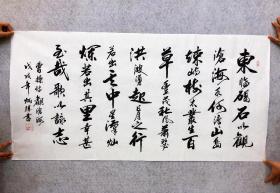 東臨碣石以觀
滄海水何澹澹山島
竦峙樹木叢生百
草豐茂秋風蕭瑟
洪波湧起日月之行
若出其中星漢燦
爛若出其里幸甚
至哉歌以詠志
曹操詩觀滄海
戊戌年